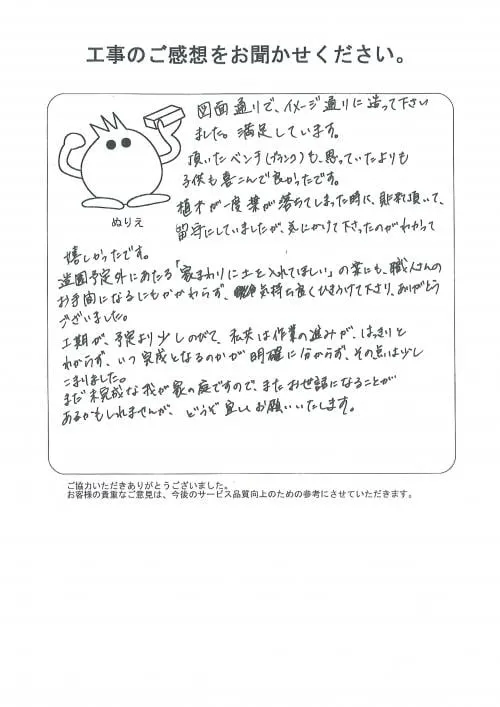 工事のご感想をお聞かせください。
図面通りで、イメージ通りに造って下さい
ました。満足しています。
頂いたベンチ(ブランコ)も、思っていたよりも
子供も喜こんで良かったです。
植木が一度葉が落ちてしまった時に、見に来て頂いて、
留守にしていましたが、気にかけて下さったのがわかって
ぬりえ
嬉しかったです。
造園予定外にあたる「家まわりに土を入れてほしい」の案にも、職人さんの
お手間になるにもかかわらず、気持ち良くひきうけて下さり、ありがとう
ございました。
工期が、予定より少しのびて、私共は作業の進みが、はっきりと
わからず、いつ完成となるのかが明確に分からず、その点は少し
こまりました。
まだ未完成な我が家の庭ですので、またお世話になることが
あるかもしれませんが、どうぞ宜しくお願いいたします。
ご協力いただきありがとうございました。
お客様の貴重なご意見は、今後のサービス品質向上のための参考にさせていただきます。